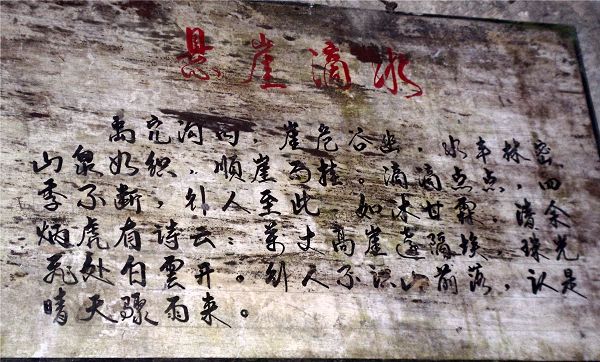 悬崖滴水
沟内，崖危谷幽，水丰林密
山泉如织，顺崖而挂。滴滴点点，四
季不断，外人至此，如沐甘霖。清余
炳虎有诗云：萬丈高崖遠隔埃，珠光
飛处白雲开。外人不识山前落，认是
晴天骤雨来。